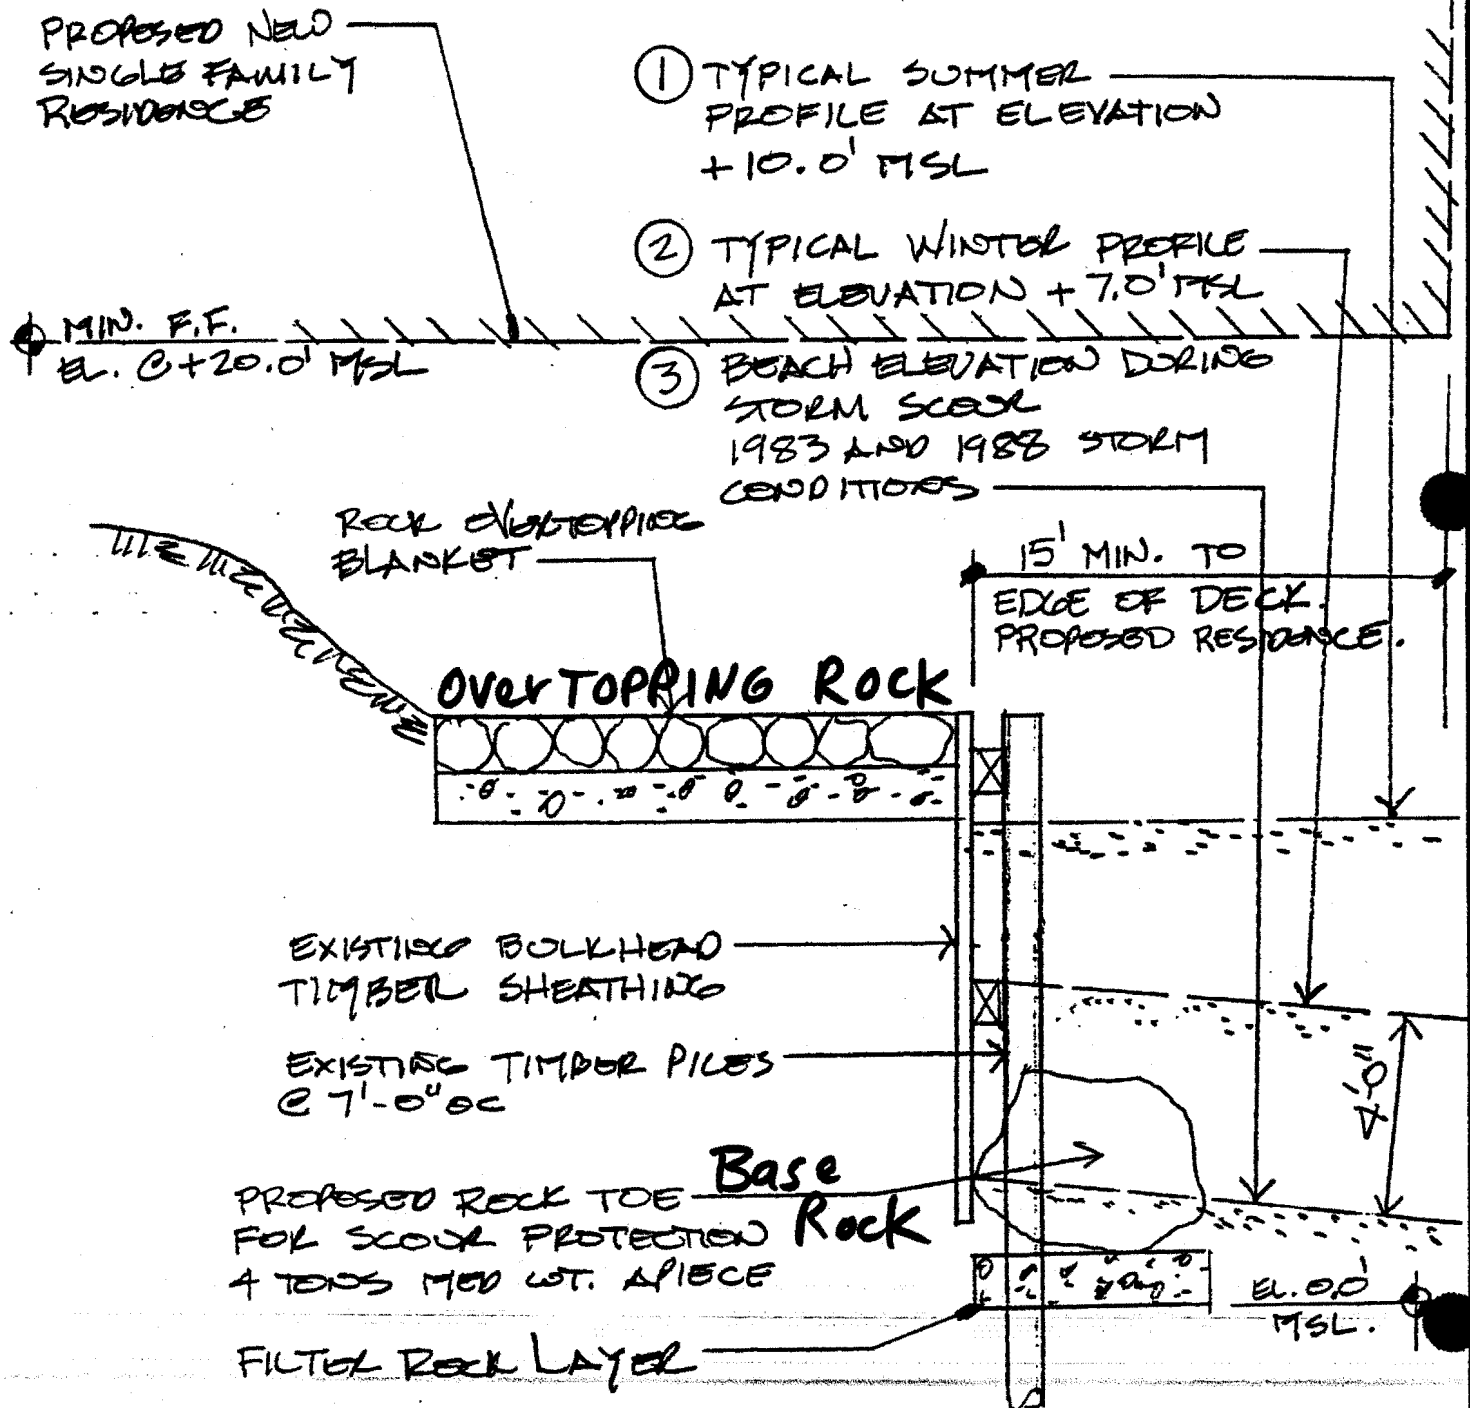 PROPOSED NEW
SINGLE FAMILY
RESIDENCE
1 TYPICAL SUMMER
PROFILE AT ELEVATION
+10.0' MSL
2 TYPICAL WINTER PROFILE
AT ELEVATION +7.0' MSL
MIN. F.F.
EL. @ +20.0' MSL
3 BEACH ELEVATION DURING
STORM SCOUR
1983 AND 1988 STORM
CONDITIONS
ROCK OVERTOPPING
BLANKET
15' MIN. TO
EDGE OF DECK.
PROPOSED RESIDENCE.
OVerTOPPING ROCK
EXISTING BULKHEAD
TIMBER SHEATHING
EXISTING TIMBER PILES
@ 7'-0" OC
4'-0"
Base
Rock
PROPOSED ROCK TOE
FOR SCOUR PROTECTION
4 TONS MED WT. APIECE
EL. 0.0'
MSL.
FILTER ROCK LAYER